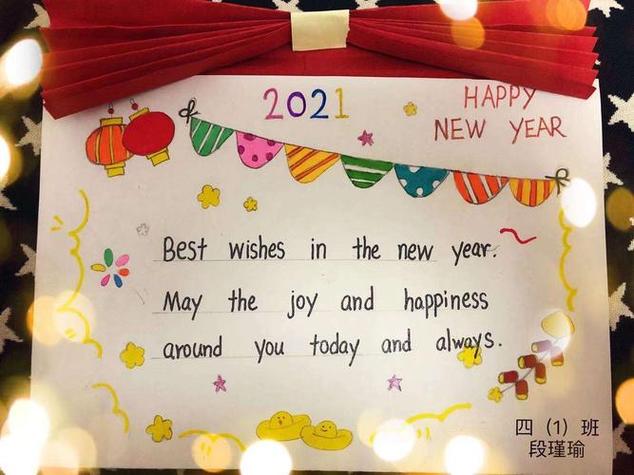 2021
HAPPY
NEW YEAR
Best wishes in the new year.
May the joy and happiness
around you today and always.
四（1）班
段瑾瑜